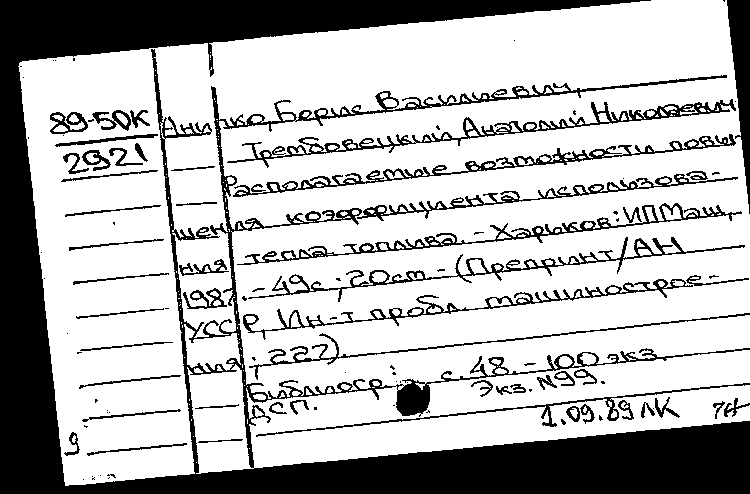 89-50К
2921
Анипко, Борис Васильевич,
Трембовецкий, Анатолий Николаевич
Располагаемые возможности повы-
шения коэффициента использова-
ния тепла топлива. - Харьков: ИПМаш,
1987. - 49с; 20см - (Препринт/АН
УССР, Ин-т пробл. машинострое-
ния; 227).
Библиогр: с. 48. - 100 экз.
ДСП. Экз. N99.
1.09.89 ЛК
9